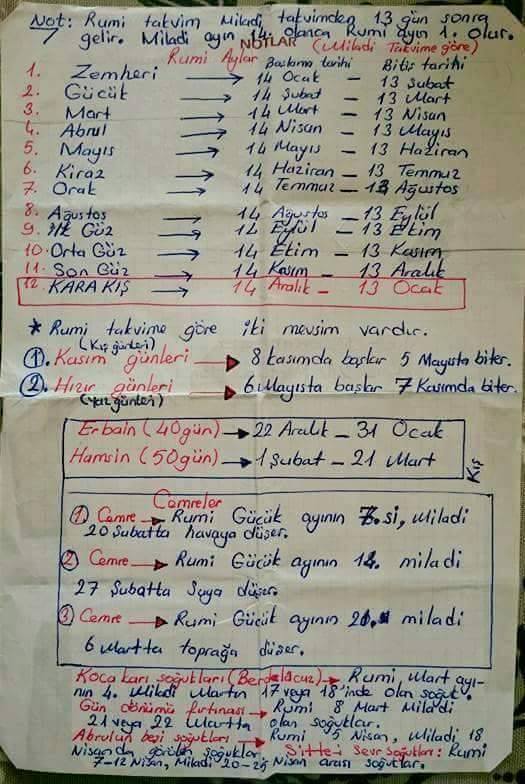 Not: Rumi takvim Miladi takvimden 13 gün sonra
gelir. Miladi ayın 14. olunca Rumi ayın 1. olur.
NOTLAR
Rumi Aylar (Miladi Takvime göre)
Başlama tarihi Bitiş tarihi
1. Zemheri → 14 Ocak - 13 Şubat
2. Gücük → 14 Şubat - 13 Mart
3. Mart → 14 Mart - 13 Nisan
4. Abrul → 14 Nisan - 13 Mayıs
5. Mayıs → 14 Mayıs - 13 Haziran
6. Kiraz → 14 Haziran - 13 Temmuz
7. Orak → 14 Temmuz - 13 Ağustos
8. Ağustos → 14 Ağustos - 13 Eylül
9. İlk Güz → 14 Eylül - 13 Ekim
10. Orta Güz → 14 Ekim - 13 Kasım
11. Son Güz → 14 Kasım - 13 Aralık
12. KARA KIŞ → 14 Aralık - 13 Ocak
* Rumi takvime göre iki mevsim vardır.
(Kış günleri)
1. Kasım günleri → 8 kasımda başlar 5 Mayısta biter.
2. Hızır günleri → 6 Mayısta başlar 7 Kasımda biter.
(Yaz günleri)
Erbain (40 gün) → 22 Aralık - 31 Ocak
Hamsin (50 gün) → 1 Şubat - 21 Mart
Kış
Cemreler
1 Cemre → Rumi Gücük ayının 7.si, Miladi
20 Şubatta havaya düşer.
2 Cemre → Rumi Gücük ayının 14. miladi
27 Şubatta Suya düşer.
3 Cemre → Rumi Gücük ayının 21. miladi
6 Martta toprağa düşer.
Koca karı soğukları (Berdelacuz) → Rumi Mart ayı-
nın 4. Miladi Martın 17 veya 18'inde olan soğuk.
Gün dönümü fırtınası → Rumi 8 Mart Miladi
21 veya 22 Martta olan soğuklar.
Abrulun beşi soğukları → Rumi 5 Nisan, Miladi 18
Nisanda görülen soğuklar. Sitte-i Sevr Soğukları: Rumi
7-12 Nisan, Miladi 20-25 Nisan arası soğuklar.